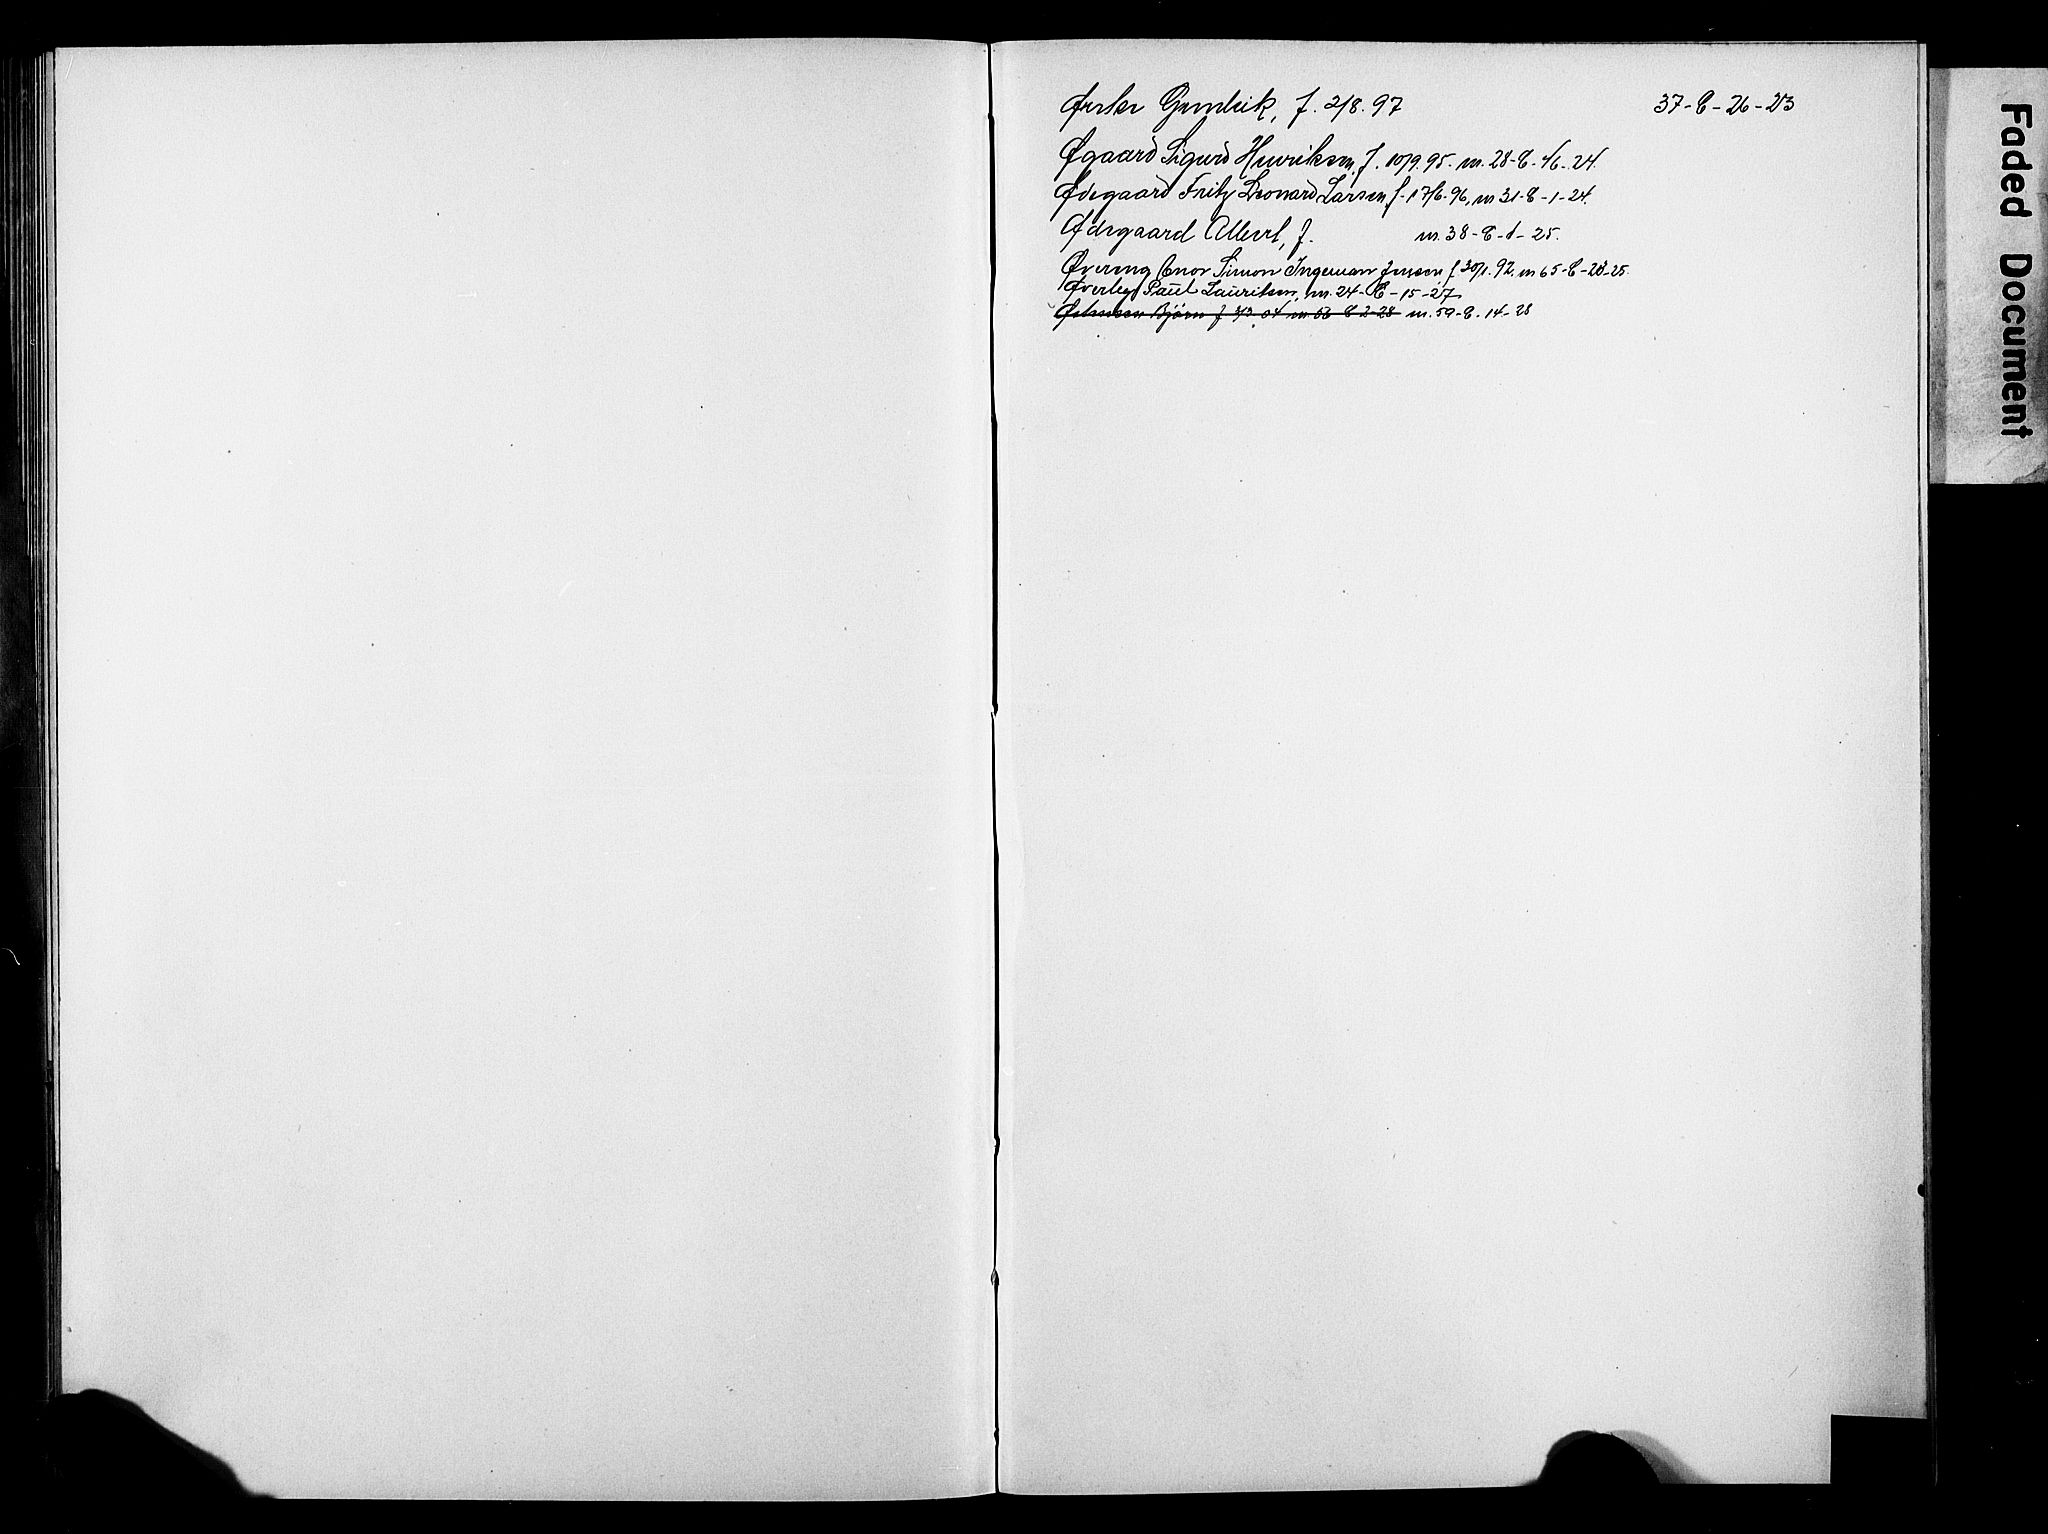 f. 2/8. 97 37-E-26-23
Øgaard Sigurd Henriksen, f. 10/9. 95. m. 28-E-16-24
Ødegaard Fritz Leonard Larsen, f. 17/6. 96, m 31-E-1-24.
Ødegaard Albert, f. m. 38-E-1-25.
Øvereng Enor Simon Ingeman Jensen f 30/1. 92. m 65-E-28-25.
Øverleg Paul Lauritsen, m. 24-E-15-27
Bjørn f 3/3. 04 m 58 E 2-28 m. 59-E-14-28
Faded Document